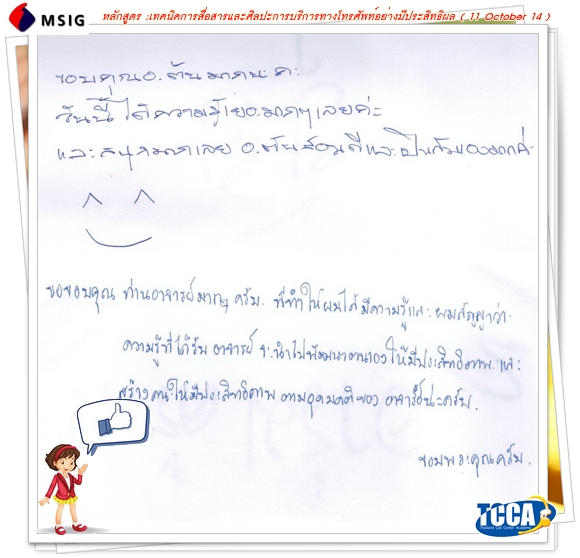 MSIG
หลักสูตร :เทคนิคการสื่อสารและศิลปะการบริการทางโทรศัพท์อย่างมีประสิทธิผล ( 11 October 14 )
ขอบคุณอ.ต้นมากนะคะ
วันนี้ได้ความรู้เยอะมากๆเลยค่ะ
และสนุกมากเลย อ.ต้นสอนดีและเป็นกันเองมากค่ะ
ขอขอบคุณ ท่านอาจารย์มาก ครับ. ที่ทำให้ผมได้มีความรู้และผมสัญญาว่า
ความรู้ที่ได้รับ อาจารย์ จะนำไปพัฒนาตนเองให้มีประสิทธิภาพ และ
สร้างคนให้มีประสิทธิภาพ ตามอุดมคติของ อาจารย์นะครับ.
ขอบพระคุณครับ.
TCCA
Thailand Call Center Academy